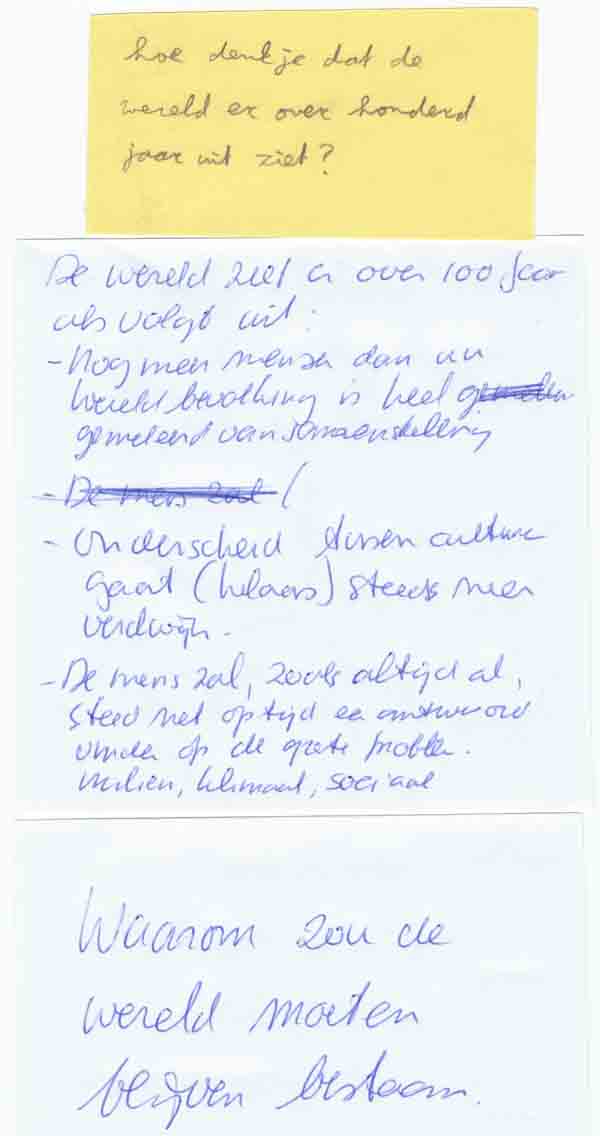 hoe denk je dat de
wereld er over honderd
jaar uit ziet?
De wereld ziet er over 100 jaar
als volgt uit:
- Nog meer mensen dan nu
wereldbevolking is heel
gemeleerd van samenstelling
- De mens zal (
- Onderscheid tussen culture
gaat (helaas) steeds meer
verdwijn.
- De mens zal, zoals altijd al,
steed net op tijd een antwoord
vinden op de grote problem.
milieu, klimaat, sociaal
Waarom zou de
wereld moeten
blijven bestaan.